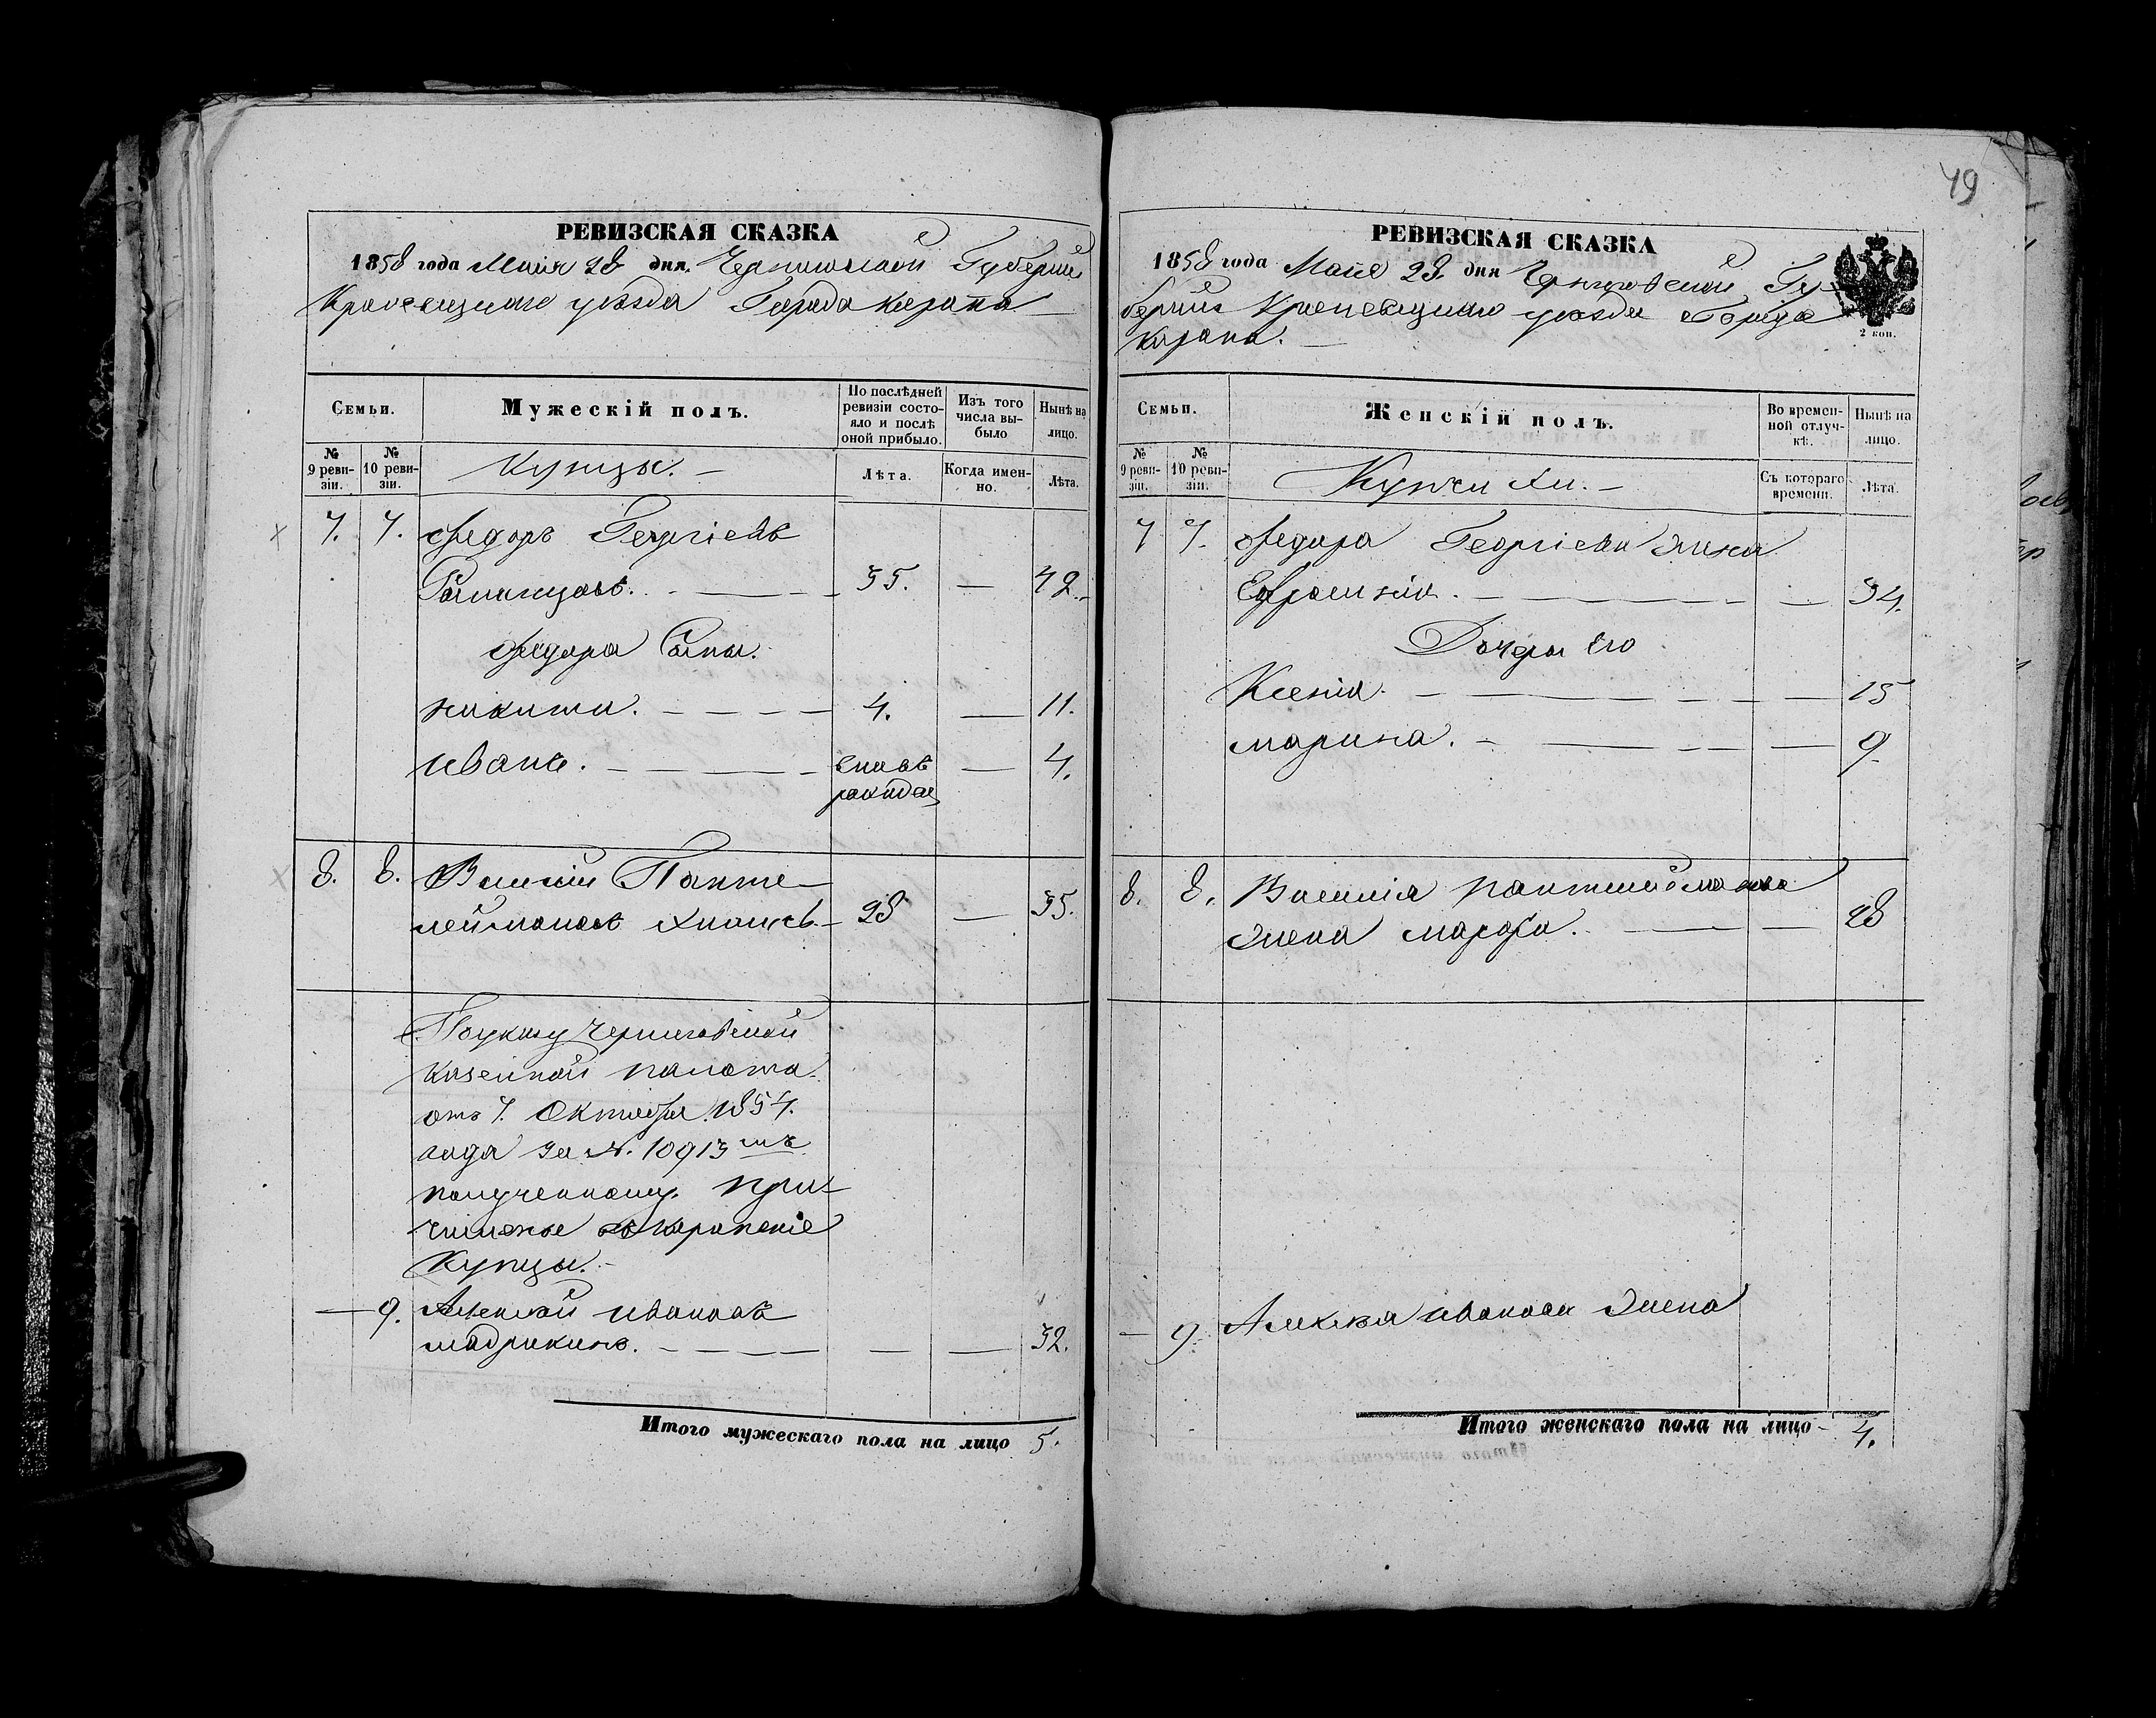 49
РЕВИЗСКАЯ СКАЗКА
1858 года Маія 28 дня. Черниговской Губерніи
Кролевецкаго уѣзда Города Коропа
Семьи.
Мужескій полъ.
По послѣдней ревизіи состояло и послѣ оной прибыло.
Изъ того числа выбыло
Нынѣ на лицо.
№ 9 ревизіи.
№ 10 ревизіи.
Купцы. —
Лѣта.
Когда именно.
Лѣта.
7. 7. Федоръ Георгіевъ
35. — 42.
Федора Сыны.
никита. 4. — 11.
иванъ. — 4.
8. 8. Василій Панте-
леймоновъ 28 — 35.
По указу Черниговской
казенной палаты
отъ 7. Октября 1854.
года за №. 10913 мъ
полученному. при-
численъ въ Коропскіе
Купцы. —
— 9. Алексей ивановъ
— — 32.
Итого мужескаго пола на лицо 5.
РЕВИЗСКАЯ СКАЗКА
1858 года Маія 28. дня Черниговской Гу-
берніи Кролевецкаго уѣзда Города
Коропа. —
2 коп.
Семьи.
Женскій полъ.
Во временной отлучкѣ.
Нынѣ на лицо.
№ 9 ревизіи.
№ 10 ревизіи.
Купчихи. —
Съ котораго времени.
Лѣта.
7 7. Федора Георгіева жена
Ефросинія. — 34.
Дочери Его
Ксенія. — 15
марина. — 9.
8. 8. Василія пантелеймонова
жена марфа. — 28
— 9. Алексея иванова жена
Итого женскаго пола на лицо — 4.